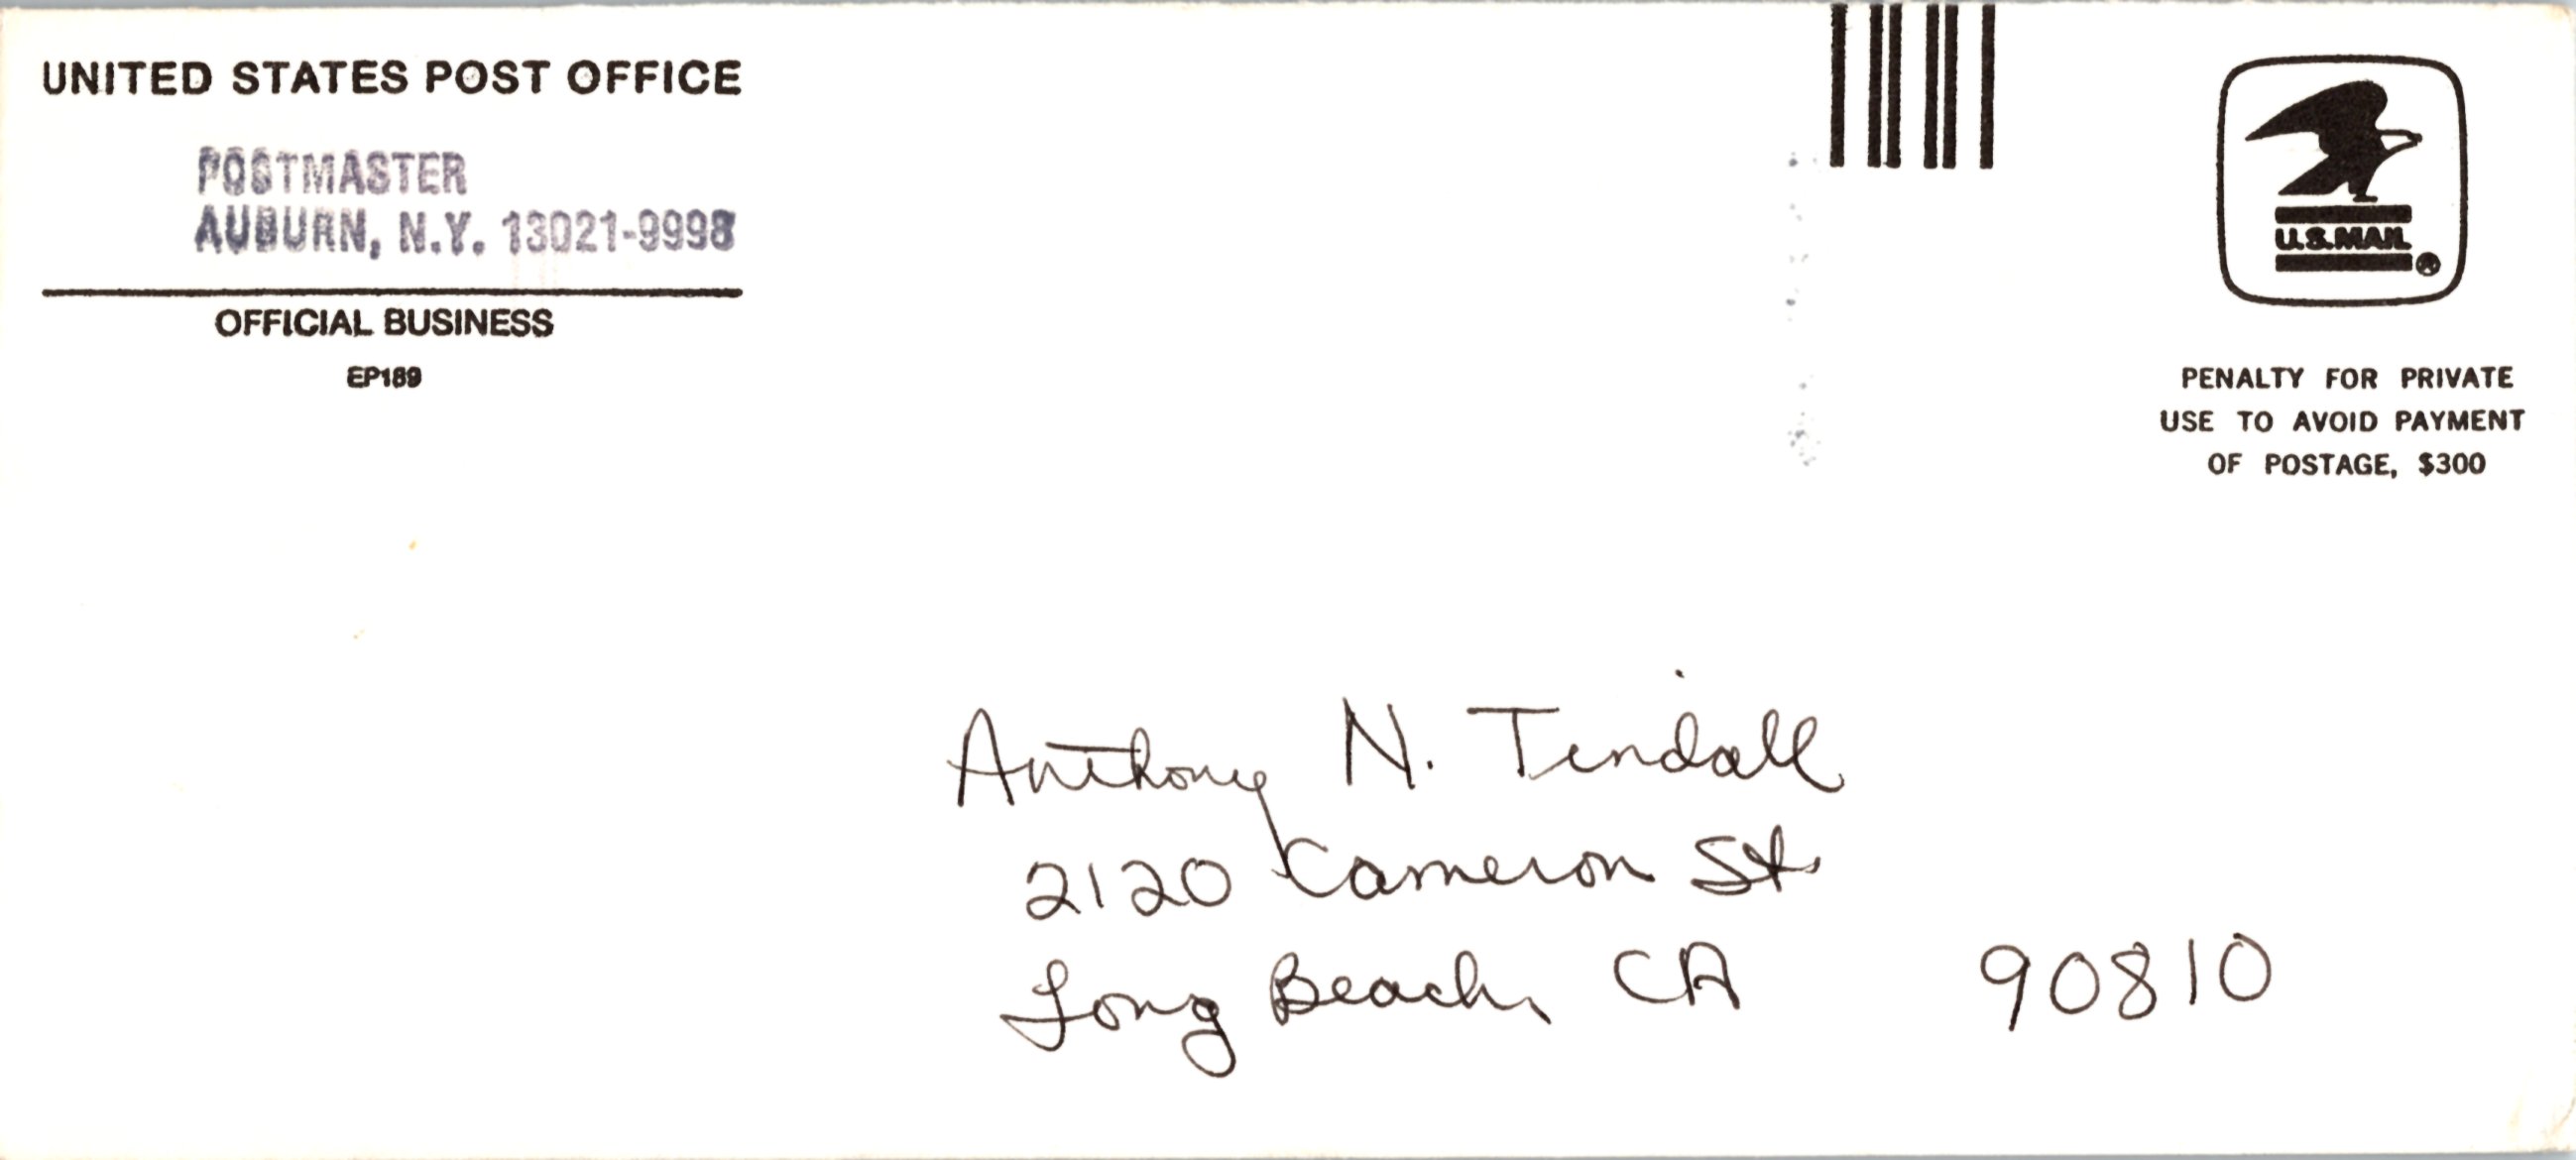 UNITED STATES POST OFFICE
POSTMASTER
AUBURN, N.Y. 13021-9998
OFFICIAL BUSINESS
EP189
U.S.MAIL ®
PENALTY FOR PRIVATE
USE TO AVOID PAYMENT
OF POSTAGE, $300
Anthony N. Tindall
2120 Cameron St.
Long Beach, CA 90810